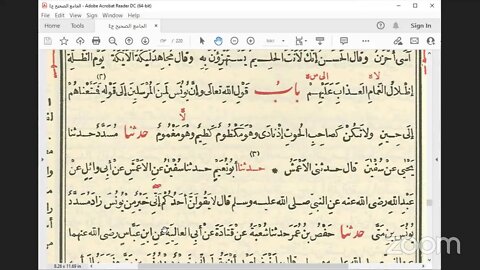 الجامع الصحيح ج٤ - Adobe Acrobat Reader DC (64-bit)
Home Tools
الجامع الصحيح ج٤
Sign In
/ 220
آسى أحزن وقال الحسن إنك لأنت الحليم يستهزؤن به وقال مجاهد ليكة الأيكة يوم الظلة
إظلال الغمام العذاب عليهم باب قول الله تعالى وإن يونس لمن المرسلين إلى قوله فمتعناهم
إلى حين ولا تكن كصاحب الحوت إذ نادى وهو مكظوم كظيم وهو مغموم حدثنا مسدد حدثنا
يحيى عن سفين قال حدثنى الأعمش * حدثنا أبو نعيم حدثنا سفين عن الأعمش عن أبى وائل عن
عبد الله رضى الله عنه عن النبى صلى الله عليه وسلم قال لا يقولن أحدكم إنى خير من يونس زاد مسدد
يونس بن متى حدثنا حفص بن عمر حدثنا شعبة عن قتادة عن أبى العالية عن ابن عباس رضى الله عنهما
8.26 x 11.69 in
zoom